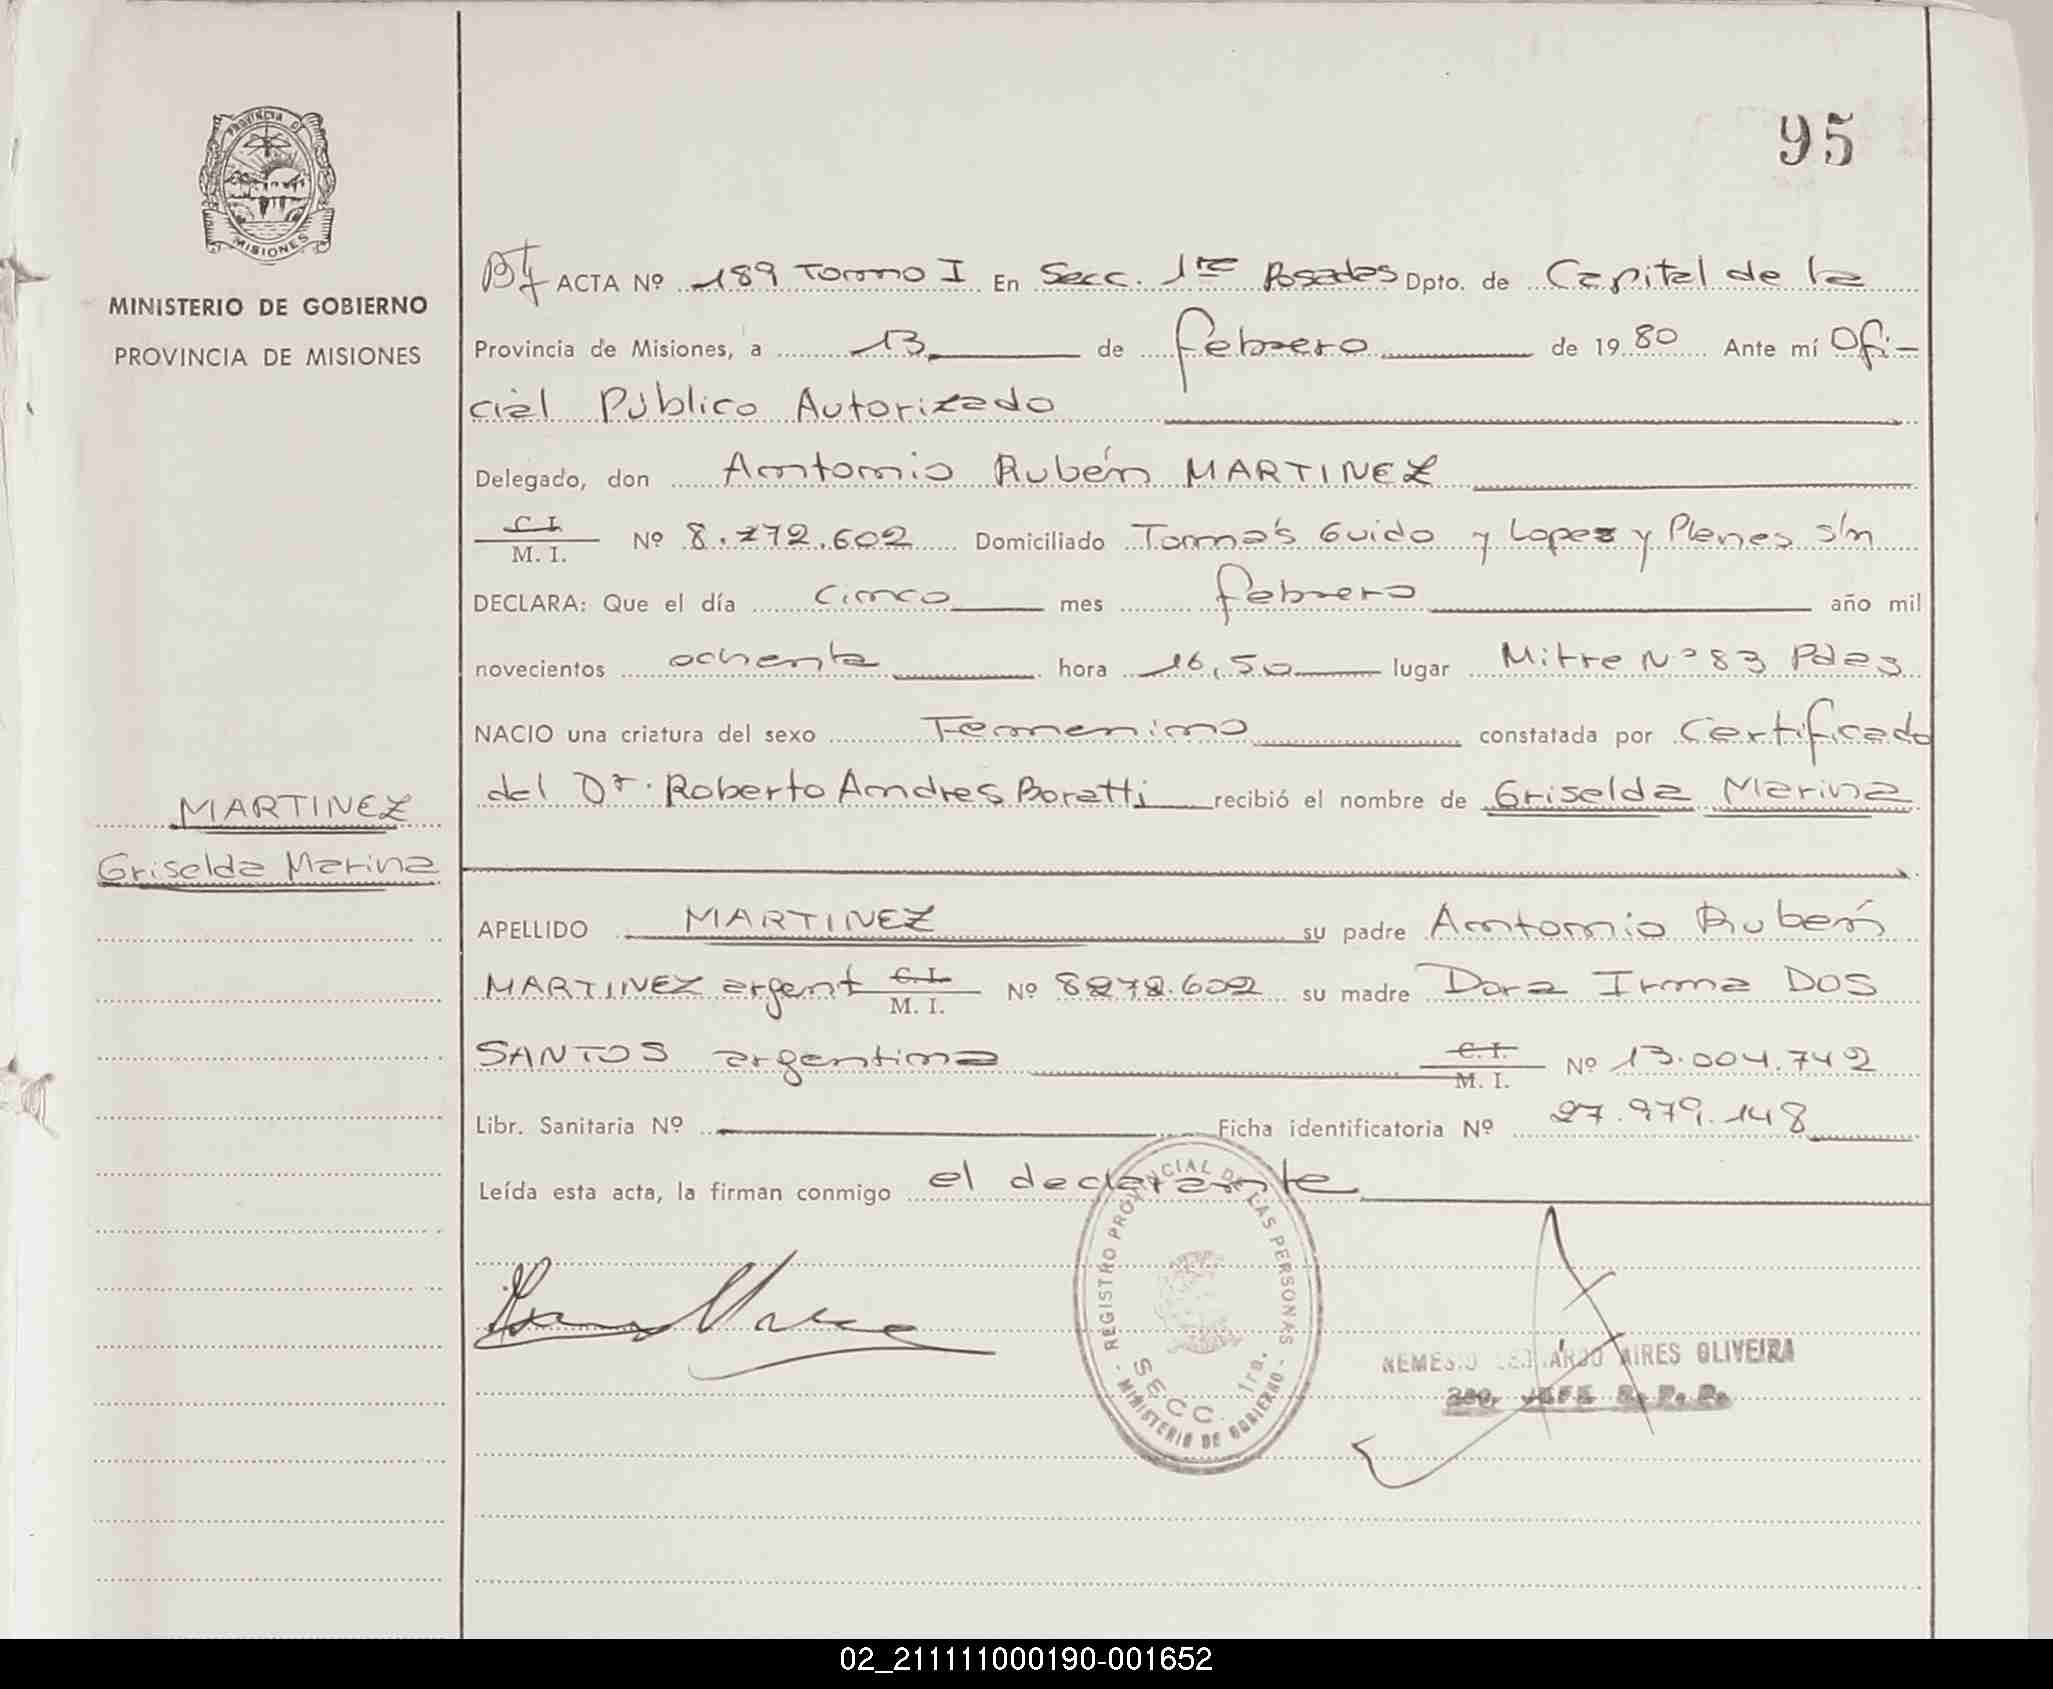 PROVINCIA DE
MISIONES
MINISTERIO DE GOBIERNO
PROVINCIA DE MISIONES
MARTINEZ
Griselda Marina
95
ACTA Nº 189 Tomo I En Secc. 1ra Posadas Dpto. de Capital de la
Provincia de Misiones, a 13 de febrero de 1980 Ante mí Ofi-
cial Público Autorizado
Delegado, don Antonio Rubén MARTINEZ
C.I. M. I. Nº 8.272.602 Domiciliado Tomás Guido y Lopez y Planes s/n
DECLARA: Que el día cinco mes febrero año mil
novecientos ochenta hora 16,50 lugar Mitre Nº 83 Pdas
NACIO una criatura del sexo Femenino constatada por Certificado
del Dr. Roberto Andres Boratti recibió el nombre de Griselda Marina
APELLIDO MARTINEZ su padre Antonio Rubén
MARTINEZ argent C.I. M. I. Nº 8272.602 su madre Dora Irma DOS
SANTOS argentina C.I. M. I. Nº 13.004.742
Libr. Sanitaria Nº Ficha identificatoria Nº 27.979.148
Leída esta acta, la firman conmigo el declarante
REGISTRO PROVINCIAL DE LAS PERSONAS
SECC. 1ra.
- MINISTERIO DE GOBIERNO -
NEMESIO LEONARDO AIRES OLIVEIRA
02_211111000190-001652